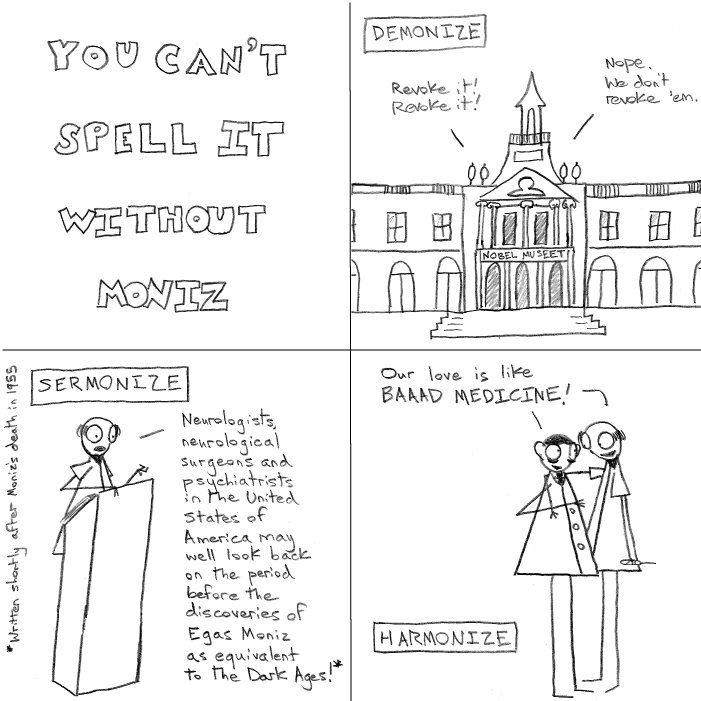 YOU CAN'T
SPELL IT
WITHOUT
MONIZ
DEMONIZE
Revoke it!
Revoke it!
Nope.
We don't
revoke 'em.
NOBEL MUSEET
SERMONIZE
Neurologists,
neurological
surgeons and
psychiatrists
in the United
States of
America may
well look back
on the period
before the
discoveries of
Egas Moniz
as equivalent
to the Dark Ages!*
*Written shortly after Moniz's death in 1955
Our love is like
BAAAD MEDICINE!
HARMONIZE